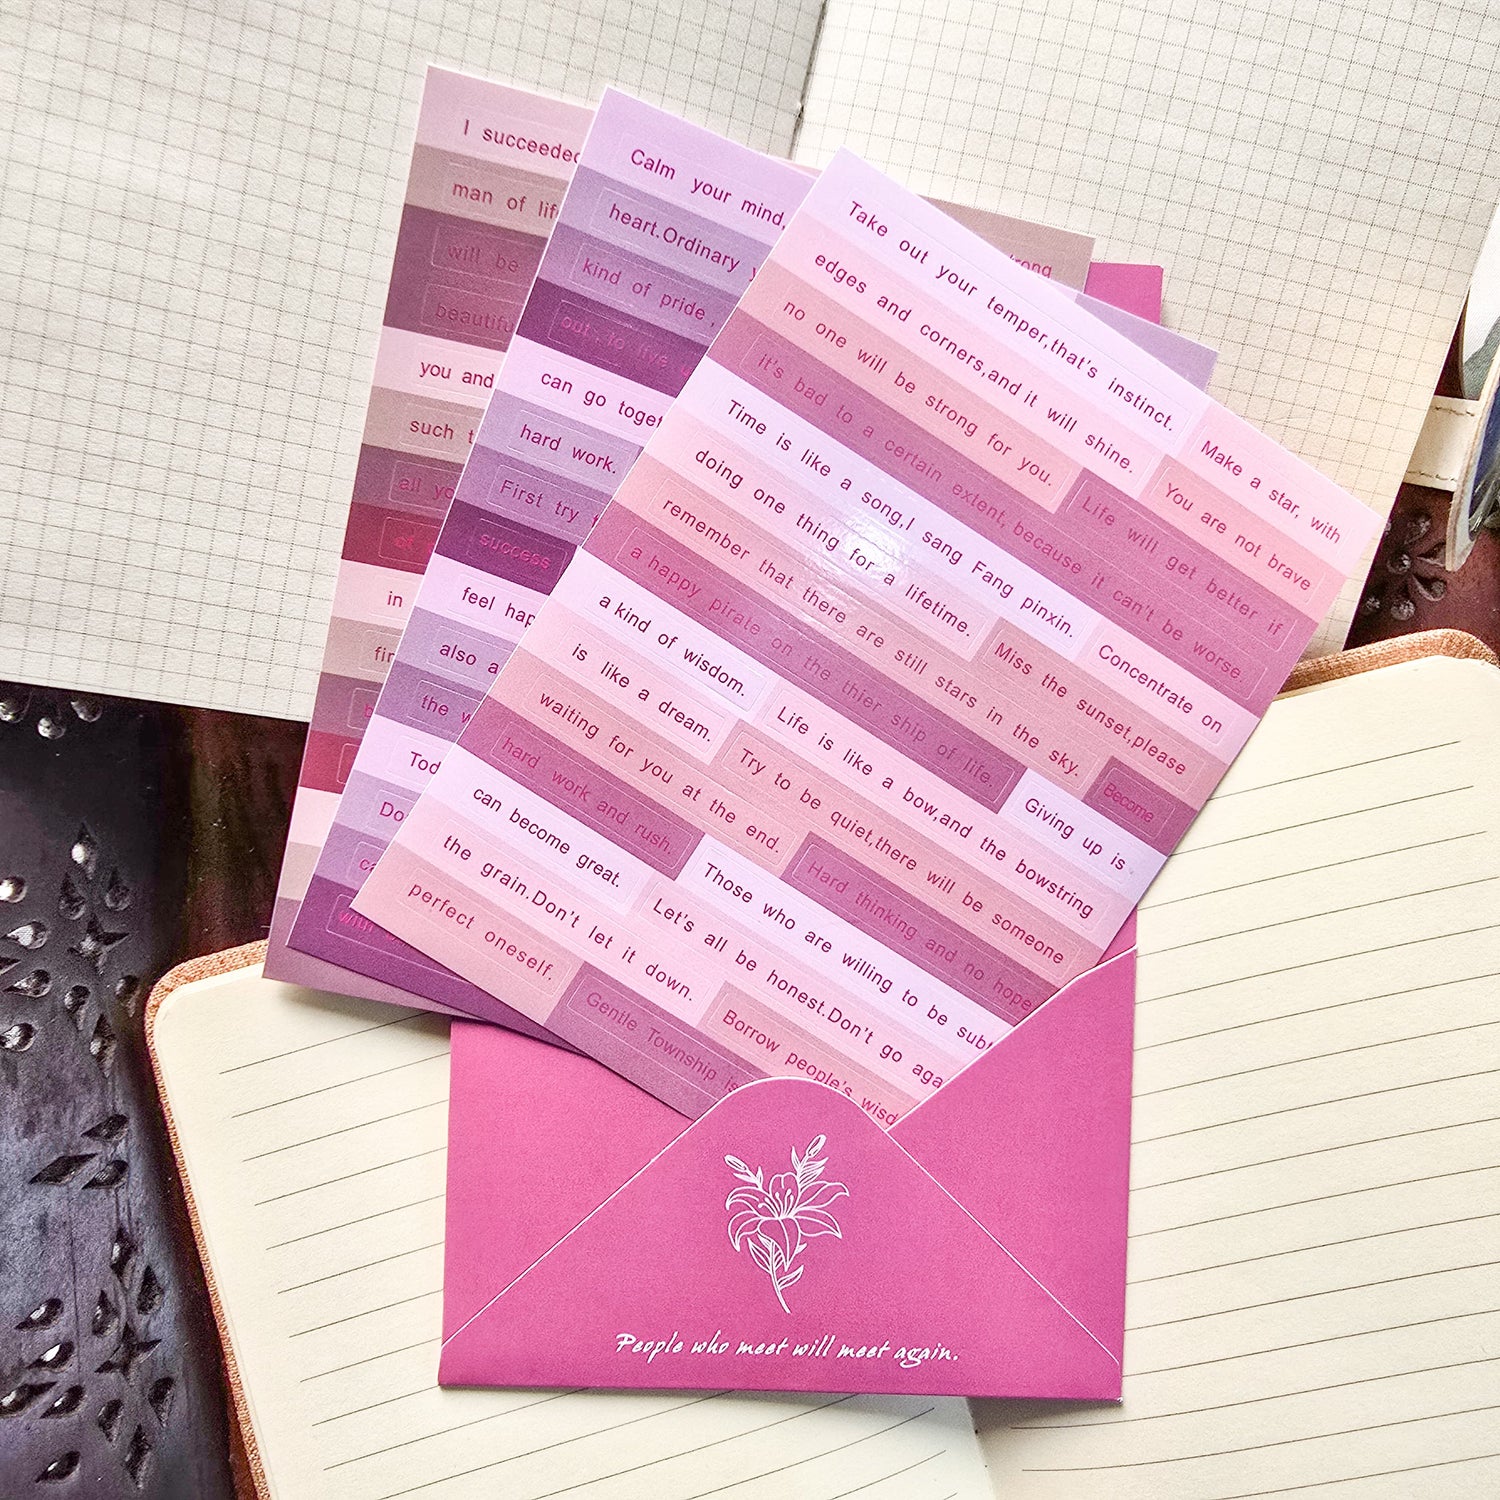 I succeeded
man of lif
will be
beautifu
you and
such t
all yo
of
in
fir
b
Calm your mind,
heart.Ordinary y
kind of pride,
out, to live
can go toget
hard work.
First try
success
feel hap
also a
the w
Tod
Do
ca
with
rong
Take out your temper,that's instinct. Make a star, with
edges and corners,and it will shine. You are not brave
no one will be strong for you. Life will get better if
it's bad to a certain extent, because it can't be worse.
Time is like a song,I sang Fang pinxin. Concentrate on
doing one thing for a lifetime. Miss the sunset,please
remember that there are still stars in the sky. Become
a happy pirate on the thier ship of life. Giving up is
a kind of wisdom. Life is like a bow,and the bowstring
is like a dream. Try to be quiet,there will be someone
waiting for you at the end. Hard thinking and no hope
hard work and rush. Those who are willing to be subt
can become great. Let's all be honest.Don't go aga
the grain.Don't let it down. Borrow people's wisd
perfect oneself. Gentle Township is
People who meet will meet again.